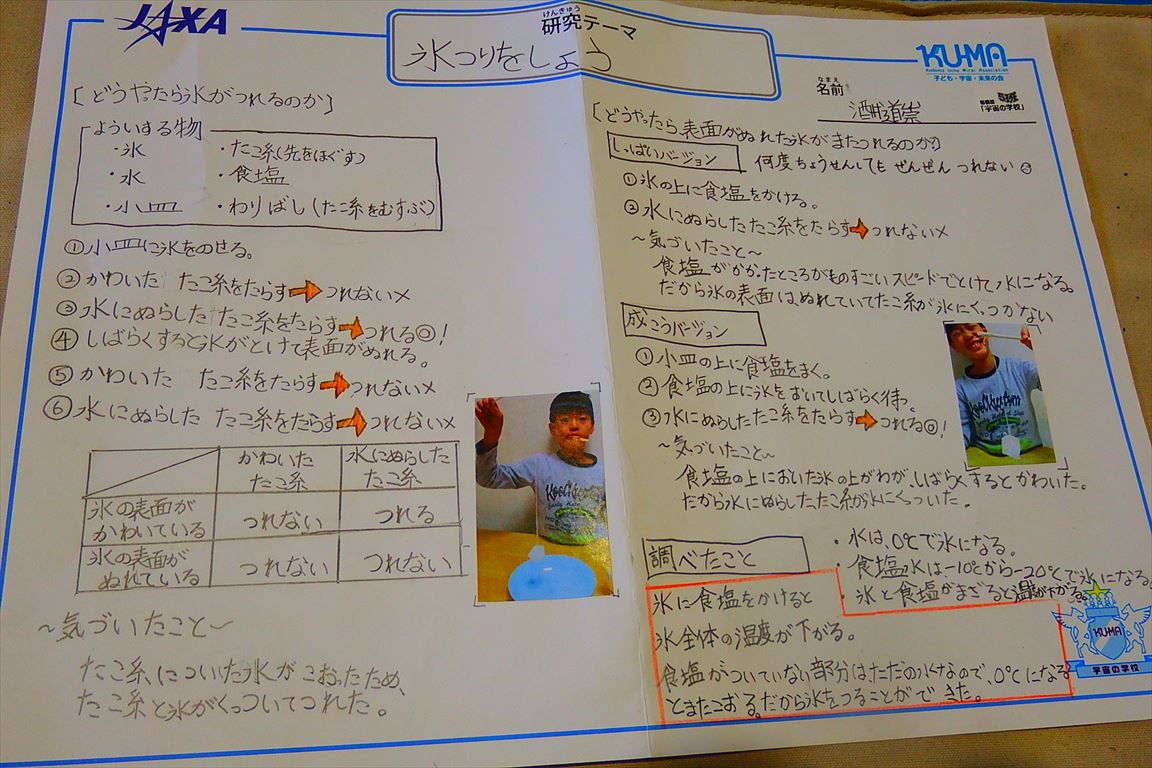 JAXA
けんきゅう
研究テーマ
氷つりをしょう
KU-MA
Kodomo Uchu Mirai Association
子ども・宇宙・未来の会
なまえ
名前
「宇宙の学校」
[どうやったら氷がつれるのか]
よういする物
・氷 ・たこ糸(先をほぐす)
・水 ・食塩
・小皿 ・わりばし(たこ糸をむすぶ)
①小皿に氷をのせる。
②かわいた たこ糸をたらす➡つれない×
③水にぬらしたたこ糸をたらす➡つれる◎!
④しばらくすると氷がとけて表面がぬれる。
⑤かわいた たこ糸をたらす➡つれない×
⑥水にぬらした たこ糸をたらす➡つれない×
かわいたたこ糸 水にぬらしたたこ糸
氷の表面がかわいている つれない つれる
氷の表面がぬれている つれない つれない
~気づいたこと~
たこ糸についた水がこおったため、
たこ糸と氷がくっついてつれた。
[どうやったら、表面がぬれた氷がまたつれるのか]
しっぱいバージョン 何度ちょうせんしても ぜんぜん つれない
①氷の上に食塩をかける。
②水にぬらしたたこ糸をたらす➡つれない×
~気づいたこと~
食塩がかかったところがものすごいスピードでとけて水になる。
だから氷の表面は、ぬれていてたこ糸が氷にくっつかない
成こうバージョン
①小皿の上に食塩をまく。
②食塩の上に氷をおいてしばらく待つ。
③水にぬらしたたこ糸をたらす➡つれる◎!
~気づいたこと~
食塩の上においた氷の上がわが、しばらくするとかわいた。
だから水にぬらしたたこ糸が氷にくっついた。
調べたこと
・水は、0℃で氷になる。
・食塩水は-10℃から-20℃で氷になる。
・氷と食塩がまざると温度が下がる。
氷に食塩をかけると
氷全体の温度が下がる。
食塩がついていない部分は、ただの水なので、0℃になる
とまたこおる。だから氷をつることができた。
KU-MA
宇宙の学校